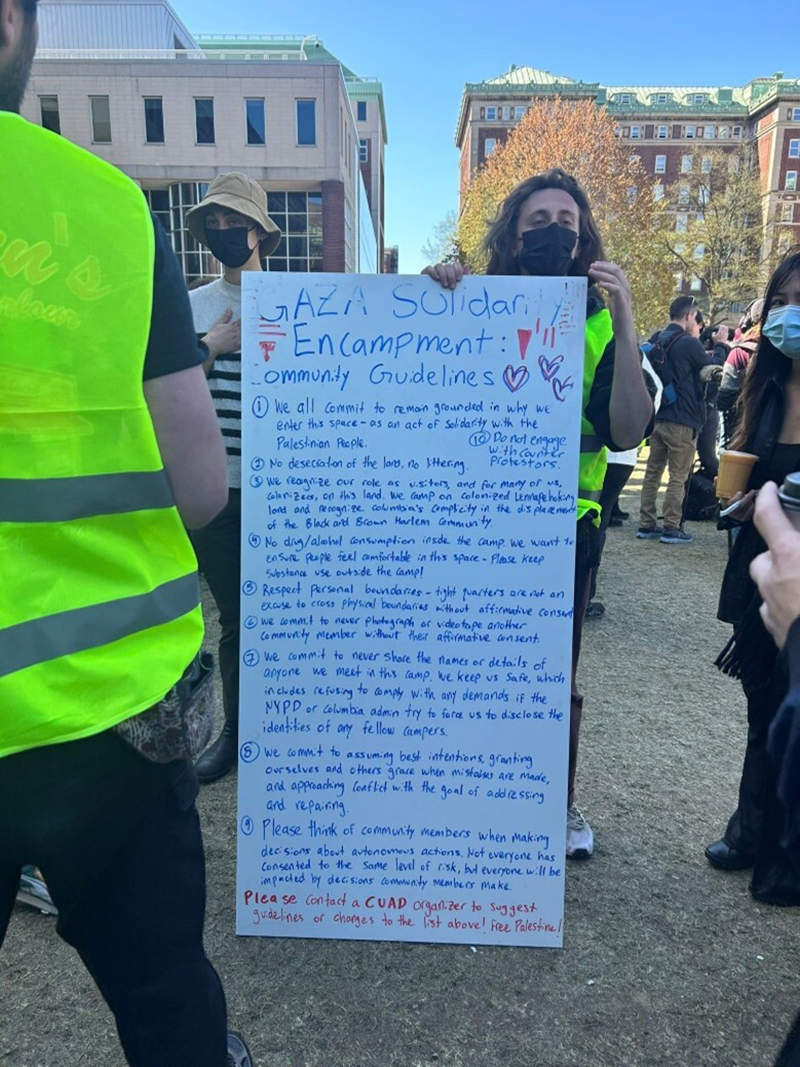 GAZA Solidarity
Encampment:
Community Guidelines
① We all commit to remain grounded in why we
enter this space - as an act of solidarity with the
Palestinian People.
⑩ Do not engage
with counter
protestors.
② No desecration of the land, no littering.
③ We recognize our role as visitors, and for many of us,
colonizers, on this land. We camp on colonized Lennapehoking
land and recognize columbia's complicity in the displacement
of the Black and Brown Harlem Community.
④ No drug/alcohol consumption inside the camp. We want to
ensure people feel comfortable in this space - Please keep
substance use outside the camp!
⑤ Respect Personal boundaries - tight quarters are not an
excuse to cross physical boundaries without affirmative consent
⑥ We commit to never photograph or videotape another
community member without their affirmative consent.
⑦ We commit to never share the names or details of
anyone we meet in this camp. We keep us safe, which
includes refusing to comply with any demands if the
NYPD or Columbia admin try to force us to disclose the
identities of any fellow campers.
⑧ We commit to assuming best intentions, granting
ourselves and others grace when mistakes are made,
and approaching conflict with the goal of addressing
and repairing.
⑨ Please think of community members when making
decisions about autonomous actions. Not everyone has
consented to the same level of risk, but everyone will be
impacted by decisions community members make.
Please contact a CUAD organizer to suggest
guidelines or changes to the list above! Free Palestine!